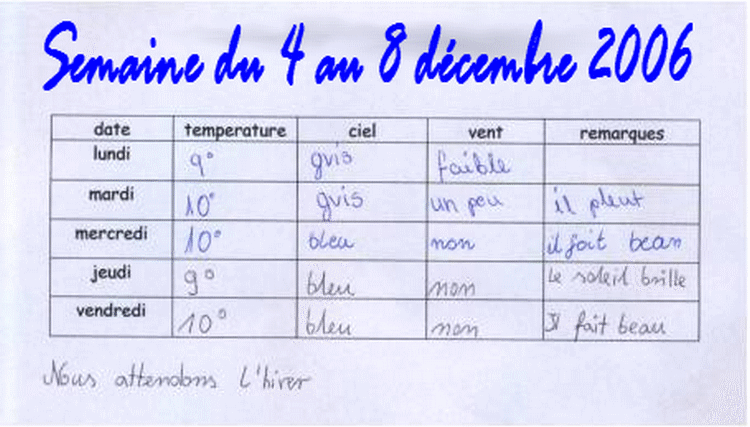 Semaine du 4 au 8 décembre 2006
date temperature ciel vent remarques
lundi 9° gris faible
mardi 10° gris un peu il pleut
mercredi 10° bleu non il fait beau
jeudi 9° bleu non Le soleil brille
vendredi 10° bleu non Il fait beau
Nous attendons L'hiver